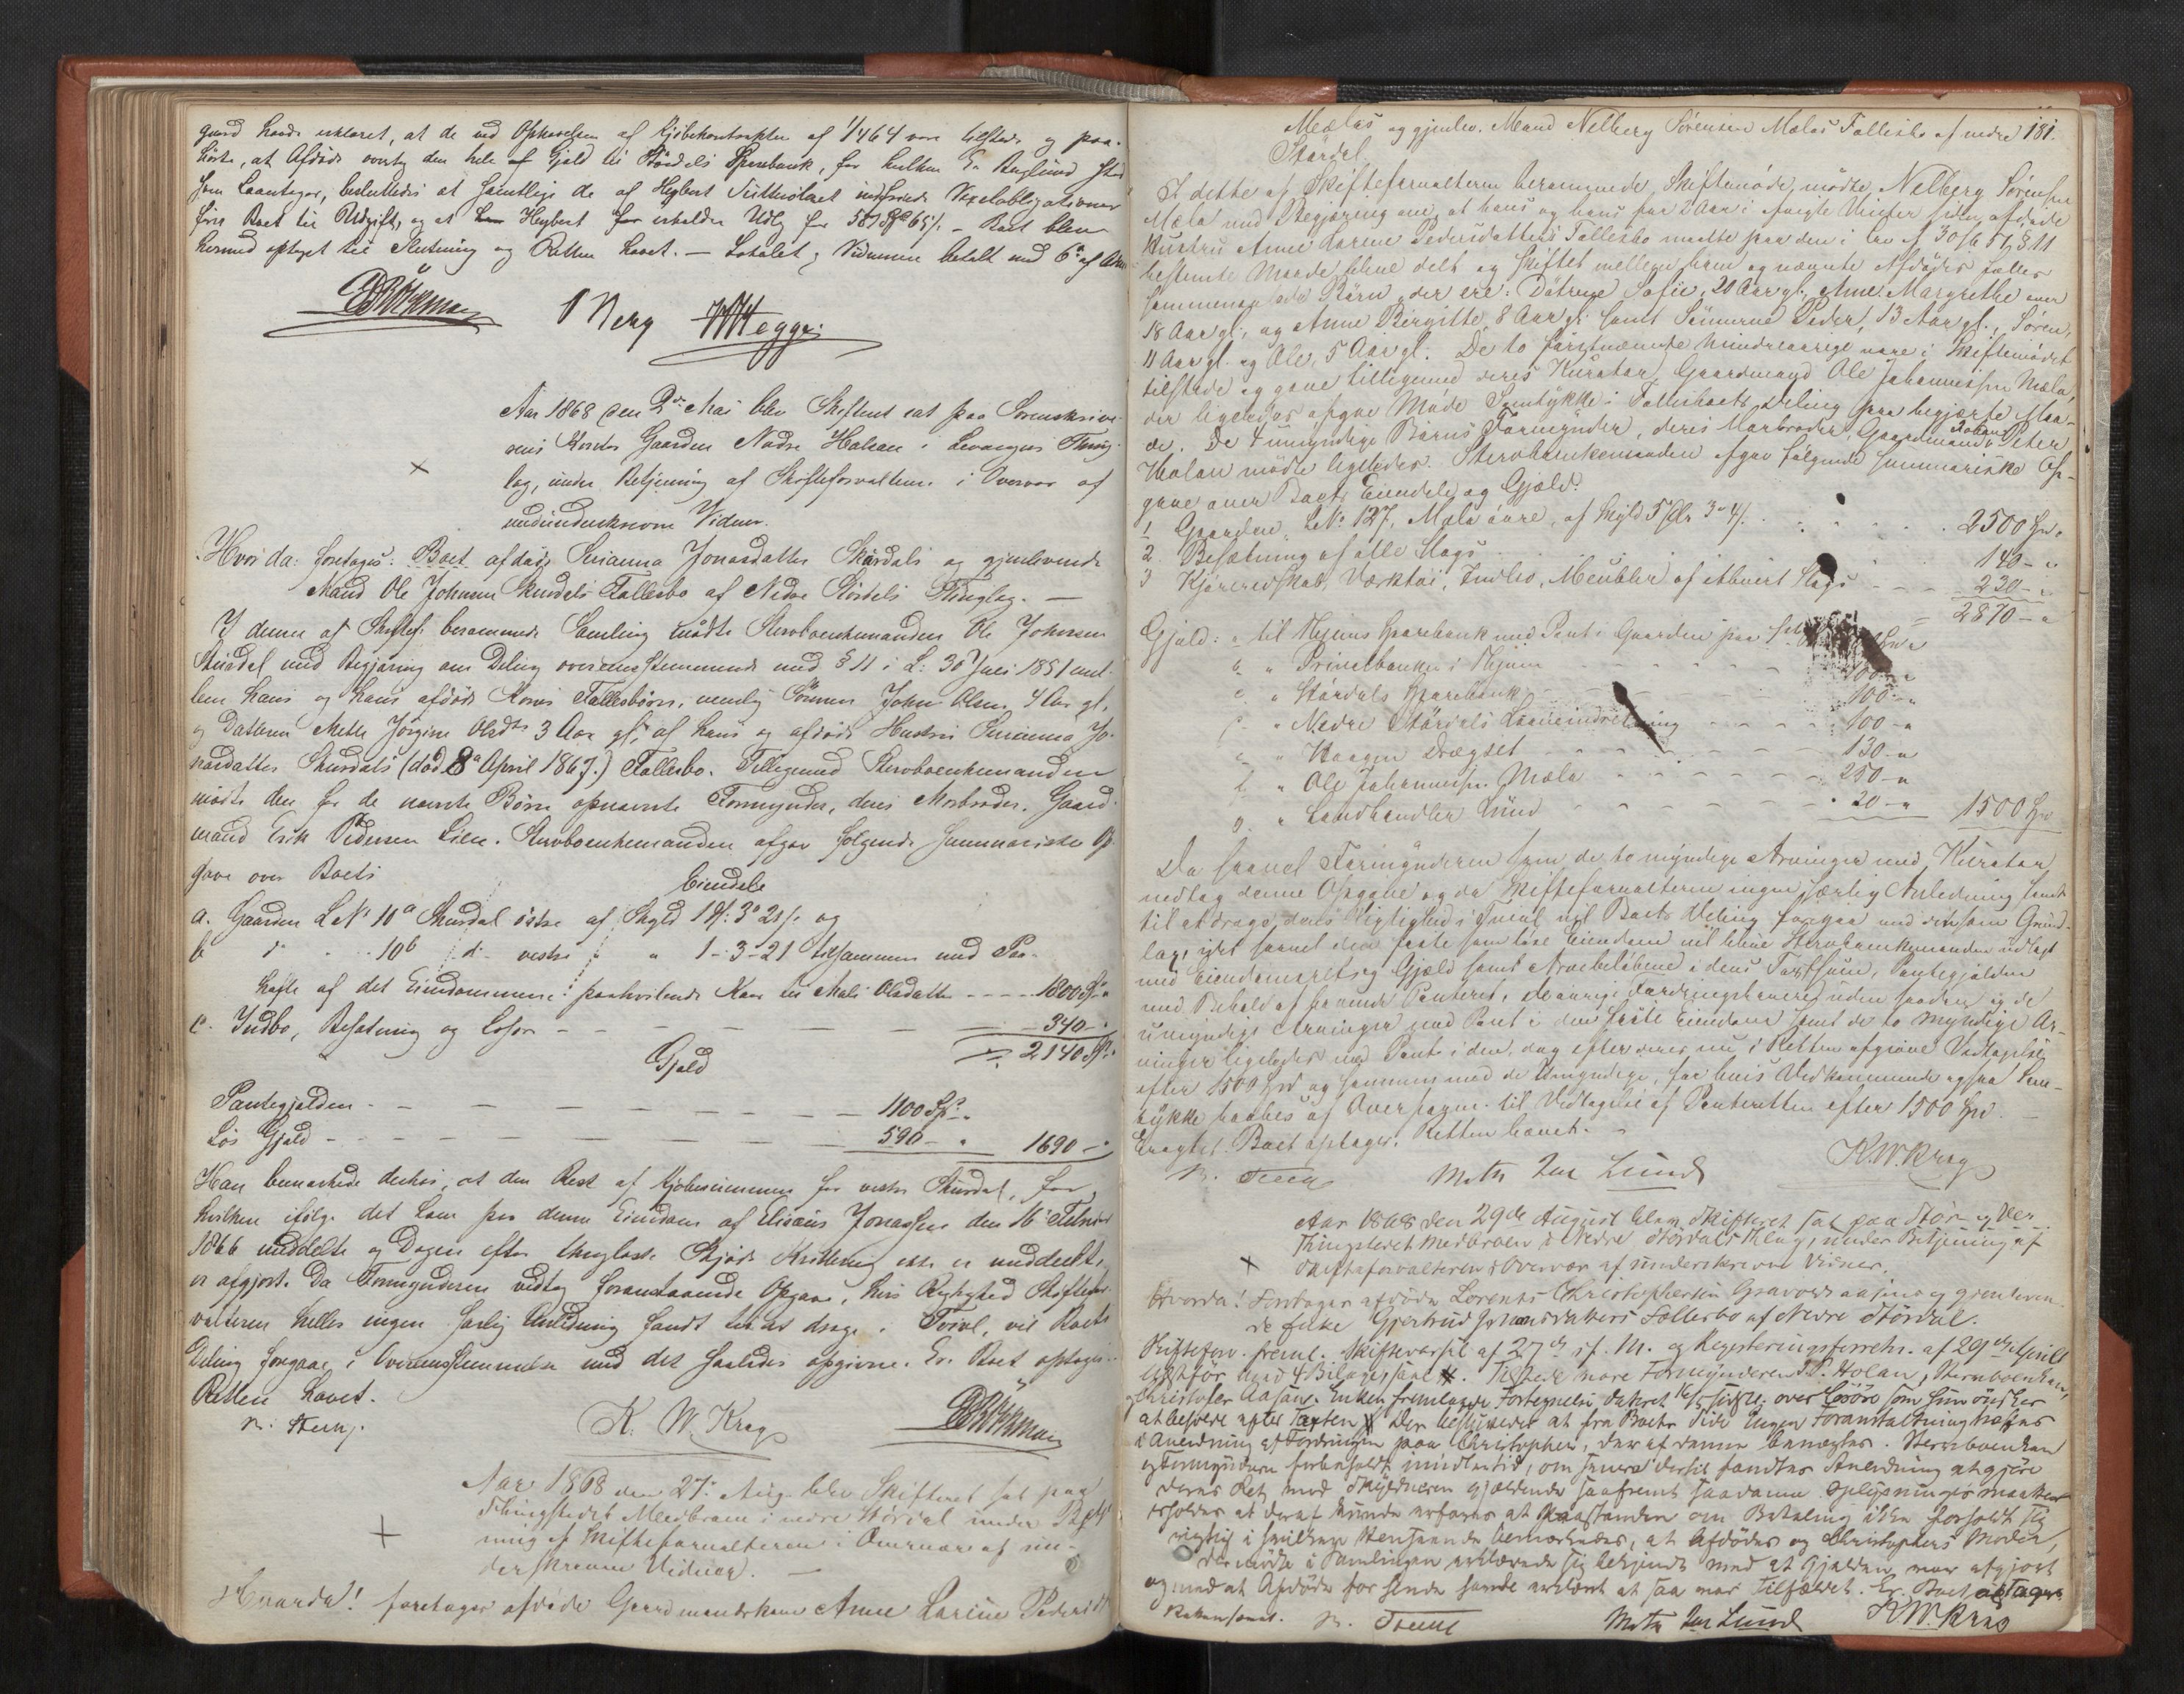 gaard havde erklæret, at de ved Ophævelsen af Kjøbekontrakten af 1/4 64 vare tilstede og paa-
hørte, at Afdøde overtog den hele Gjæld til Stördals Sparebank, for hvilken E. Reglund stod
som Laantager, besluttedes at samtlige de af Heybert indfriede Vexelobligationer
førtes Boet til Udgift, og at Heybert erholder Udlæg for 65 /. – Boet blev
hermed optaget til Slutning og Retten hævet. – Lokalet & Vidnerne betalt med 6 af
Brökman Berg Hegge
Aar 1868 den 2den Mai blev Skifteret sat paa Sorenskrive-
rens Kontor Gaarden Nedre Halsan i Levangers Thing-
lag, under Betjening af Skifteforvalteren i Overvær af
undertskrevne Vidner.
Hvorda: foretoges: Boet afdøde Susanna Jonasdatter Skurdals og gjenlevende
Mand Ole Johnsen Skurdals Fællesbo af Nedre Stördals Thinglag. –
I denne af Skiftef. berammede Samling mødte Stervboenkemanden Ole Johnsen
Skurdal, med Begjæring om Deling overensstemmende med § 11 i L: 30 Juli 1851 mel-
lem ham og hans afdøde Kones Fællesbörn, nemlig Sønnen John Olsen 4 Aar gl.
og Datteren Mette Jørgine Olsdtr 3 Aar gl., af hans og afdøde Hustru Susanna Jo-
nasdatter Skurdals (död 8de April 1867.) Fællesbo. Tilligemed Stervboenkemanden
mødte den for de nævnte Börn opnævnte Formynder, deres Morbroder, Gaard-
mand Erik Pedersen Lien. Stervboenkemanden afgav følgende summariske Op-
gave over Boets
Eiendele
a. Gaarden L.No 10a Skurdal østre af Skyld 1 3 21 /. og
b do . . 10b do vestre " " 1 - 3 - 21 tilsammen med Paa-
hefte af det Eiendommene paahvilende Kaar til Mali Olsdatter - - - - 1800 Sp. "
c. Indbo, Besætning og Løsøre - - - - - 340 - "
= 2140 Sp. "
Gjæld
Pantegjælden - - - - - - - 1100 Sp. "
Løs Gjæld - - - - - - - 590 - " 1690 - "
Han bemærkede derhos, at den Rest af Kjøbesummen for vestre Skurdal, for
hvilken ifølge det ham paa denne Eiendom af Elisæus Jonassen den 16de Februar
1866 meddelte og Dagen efter thinglæste Skjøde Kvittering ikke er meddelt,
er afgjort. Da Formynderen vedtog foranstaaende Opgave, hvis Rigtighed Skiftefor-
valteren heller ingen særlig Anledning fandt til at drage i Tvivl, vil Boets
Deling foregaa i Overensstemmelse med det saaledes opgivne. Er. Boet optages.
Retten hævet.
K. W. Krag Brökman
Aar 1868 den 27. Aug. blev Skifteret sat paa
Thingstedet Medbroen i nedre Stördal under Betje-
ning af Skifteforvalteren i Overvær af un-
derskrevne Vidner. –
Hvorda! foretages afdøde Gaardmandskone Anne Larine Pedersdtr
181.
Mælas og gjenlev. Mand Nelberg Sörensen Mælas Fællesbo af nedre
Stördal
I dette af Skifteforvalteren berammede Skiftemöde mödte Nelberg Sörensen
Mæla med Begjæring om, at hans og hans for 2 Aar i forrige Vinter siden afdöde
Hustru Anne Larine Pedersdatters Fællesbo maatte paa den i Lov af 30/6 51 § 11
bestemte Maade blive delt og skiftet mellem ham og nævnte Afdödes fælles
sammenavlede Börn, der ere: Dötrene Sofie, 20 Aar gl., Anne Margrethe over
18 Aar gl., og Anne Birgitte, 8 Aar gl. samt Sönnerne Peder, 13 Aar gl., Sören,
11 Aar gl. og Ole, 5 Aar gl. De to förstnævnte mindreaarige vare i Skiftemödet
tilstede og gave tilligemed deres Kurator, Gaardmand Ole Johannessen Mæla,
der ligeledes afgav Möde Samtykke i Fællesboets Deling paa begjærte Maa-
de. De 4 umyndige Börns Formynder, deres Morbroder, Gaardmand Johan Peter
Holan mödte ligeledes. Stervboenkemanden afgav fölgende summariske Op-
gave over Boets Eiendele og Gjæld:
1 Gaarden, L.No. 127, Mæla övre, af Skyld 5 Dlr 3 4 /. . . . . 2500 Spd. "
2 Besætning af alle Slags . . . . 140 - "
3 Kjöreredskab, Værktöi, Indbo, Meubler af ethvert Slags - - - 230 - "
= 2870 - "
Gjæld: a til Hegens Sparebank med Pant i Gaarden
b. " Privatbanken i - - - - 100 - "
c. " Stördals Sparebank - - - - 100 - "
" Nedre Stördals Laaneindretning - - - 100 - "
" Haagen Drægset - - - - 130 - "
f. " Ole Johannessen Mæla - - - - 250 - "
g. " Landhandler Lund - - - - 20 - " 1500 Spd
Da saavel Formynderen som de to myndige Arvinger med Kurator
vedtog denne Opgave og da Skifteforvalteren ingen særlig Anledning fandt
til at drage dens Rigtighed i Tvivl vil Boets Deling foregaa med den som Grund-
lag, idet saavel den faste som löse Eiendom vil blive Stervboenkemanden udlagt
med Eiendomsret og Gjæld samt Arvebeløbene i dens Taxtsum, Pantegjælden
med Behold af havende Panteret, de övrige Fordringshavere uden saadan og de
umyndige Arvinger med Pant i den faste Eiendom samt de to myndige Ar-
vinger ligeledes med Pant i den, dog efter deres nu i Retten afgivne Vedtagelse
efter 1500 Spd og sammen med de Umyndige, for hvis Vedkommende ogsaa Sam-
tykke haabes af Overformr. til Vedtagelse af Panteretten efter 1500 Spd. –
Eragtet. Boet optages. Retten hævet. –
Moth Lund K.W. Krag
Aar 1868 den 29de August blev Skifteret sat paa
Thingstedet Medbroen i Nedre Stördals Thlag, under Betjening af
Skifteforvalteren i Overvær af underskrevne Vidner.
Hvorda! Foretages afdöde Lorents Christophersen Gravoraasens og gjenleven-
de Enke Gjertrud Johansdatters Fællesbo af Nedre Stördal.
Skifteforv. freml. Skiftevarsel af 27de f. M. og Registreringsforretn. af 29de April
med 4 Bilage, Tilstede vare Formynderen J.P. Holan, Stervboenken,
og Christopher Aasen. Enken fremlagde Fortegnelse dateret over Lösöre som hun önsker
at beholde efter Taxten. Der besluttedes at fra Boets Side ingen Foranstaltning tages
i Anledning af Fordringen paa Christopher, der af denne benægtes. Stervboenken
og Formynderen forbeholdt imidlertid, om senere dertil fandtes Anledning at gjøre
deres Ret mod Skyldneren gjældende saafremt saadanne Oplysninger maatte
erholdes at deraf kunde erfares at Paastanden om Betaling ikke forholdt sig
rigtig i hvilken Henseende bemærkedes, at Afdödes og Christophers Moder,
der mödte i Samlingen erklærede sig bekjendt med at Gjælden var afgjort
og med at Afdöde før sin Död havde erklæret at saa var Tilfældet. Er. Boet optages.
Retten hævet. Moth Lund K.W. Krag